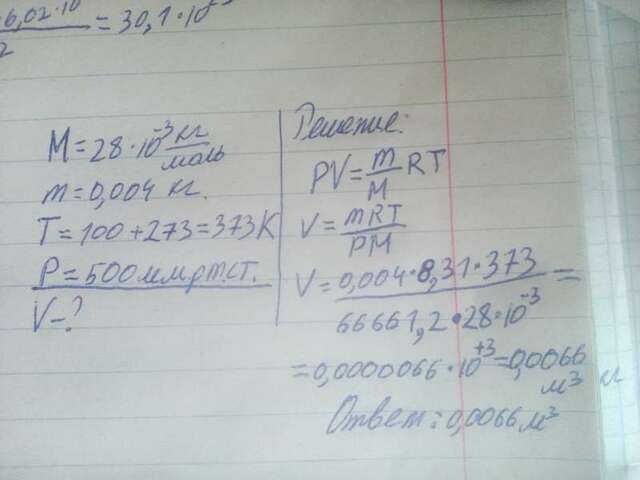 6,02·10
2
=30,1·10
M=28·10⁻³ кг/моль
m=0,004 кг.
T=100+273=373K
P=500мм рт.ст.
V-?
Решение:
PV=m/M RT
V=mRT/PM
V=0,004·8,31·373/66661,2·28·10⁻³=
=0,0000066·10⁺³=0,0066 м³
Ответ: 0,0066 м³